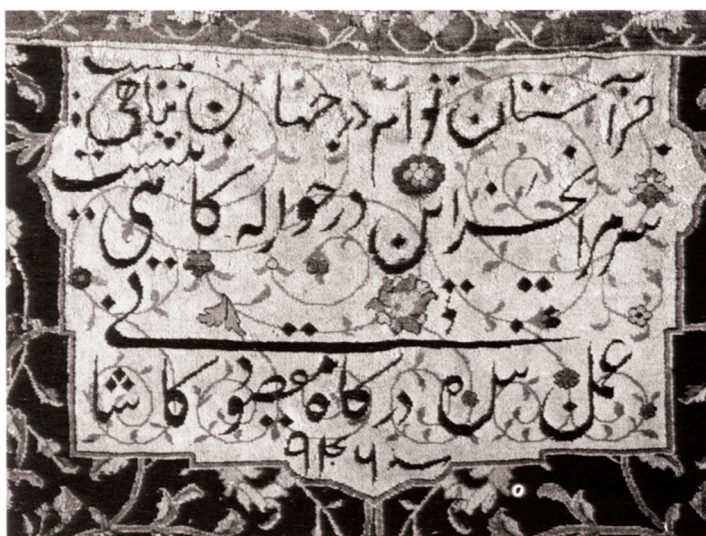 جز آستان توام در جهان پناهی نیست
سر مرا بجز این در حواله کاهی نیست
عمل بندۀ درکاه مقصود کاشانی
سنه ۹۴۶